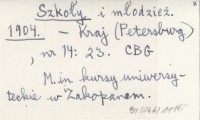 Szkoły i młodzież.
1904. – Kraj (Petersburg)
, nr 14: 23. CBG
M.in. kursy uniwersy-
teckie w Zakopanem.